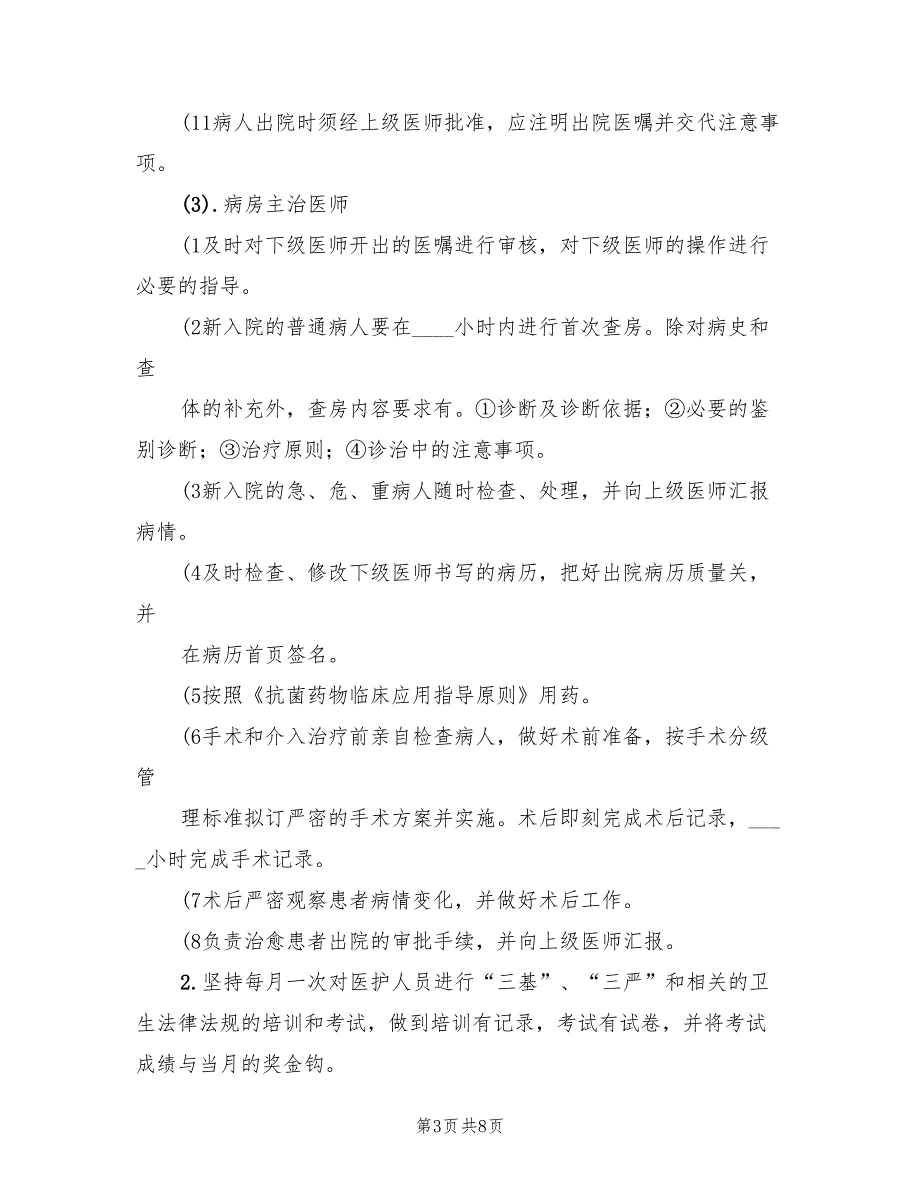 (11病人出院时须经上级医师批准，应注明出院医嘱并交代注意事
项。
(3).病房主治医师
(1及时对下级医师开出的医嘱进行审核，对下级医师的操作进行
必要的指导。
(2新入院的普通病人要在____小时内进行首次查房。除对病史和
查
体的补充外，查房内容要求有。①诊断及诊断依据；②必要的鉴
别诊断；③治疗原则；④诊治中的注意事项。
(3新入院的急、危、重病人随时检查、处理，并向上级医师汇报
病情。
(4及时检查、修改下级医师书写的病历，把好出院病历质量关，
并
在病历首页签名。
(5按照《抗菌药物临床应用指导原则》用药。
(6手术和介入治疗前亲自检查病人，做好术前准备，按手术分级
管
理标准拟订严密的手术方案并实施。术后即刻完成术后记录，___
_小时完成手术记录。
(7术后严密观察患者病情变化，并做好术后工作。
(8负责治愈患者出院的审批手续，并向上级医师汇报。
2.坚持每月一次对医护人员进行“三基”、“三严”和相关的卫
生法律法规的培训和考试，做到培训有记录，考试有试卷，并将考试
成绩与当月的奖金钩。
第3页共8页